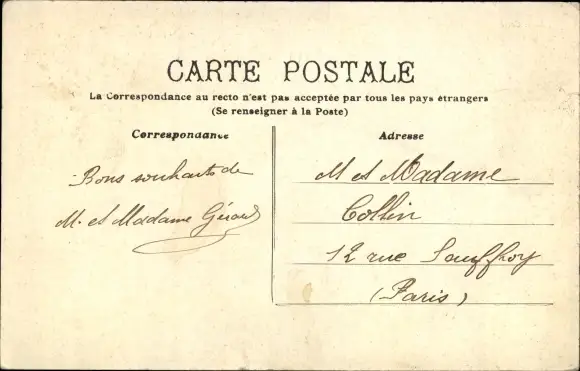 CARTE POSTALE
La Correspondance au recto n'est pas acceptée par tous les pays étrangers
(Se renseigner à la Poste)
Correspondance
Adresse
Bons souhaits de
M. et Madame Géraud
M et Madame
Collin
12 rue Sauffroy
(Paris)